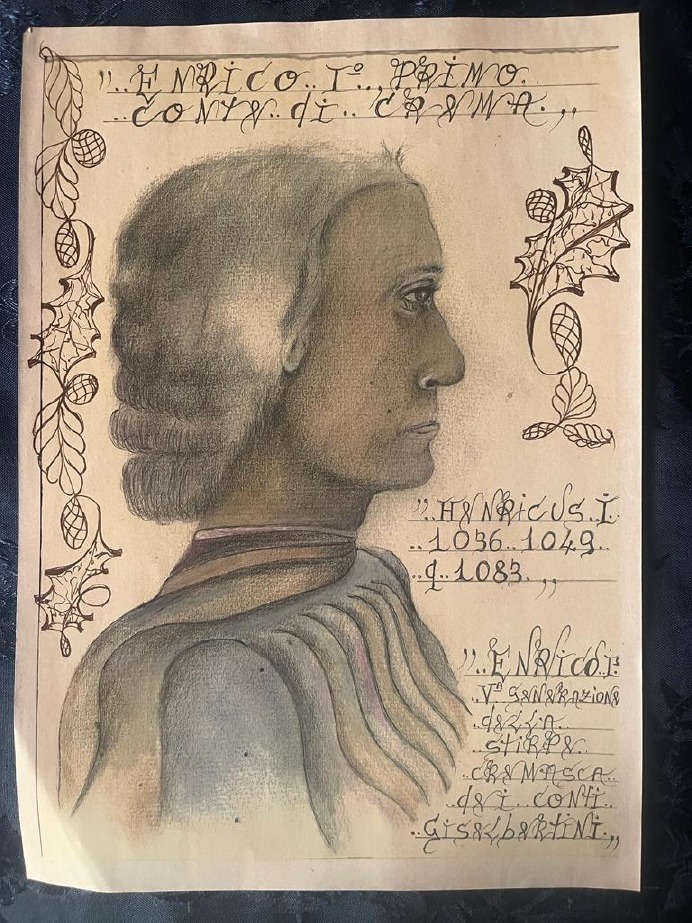 „..ENRICO. I°.., PRIMO.
..CONTE. di.. CREMA.„
„..HENRiCUS. I.
..1036..1049..
..q.1083.„
„..ENRiCO.I°.
Vª GENERAZiONE
..dELLA..
..STiRPE..
..CREMASCA..
..dEi..CONTi..
GiSELbERTiNi.„